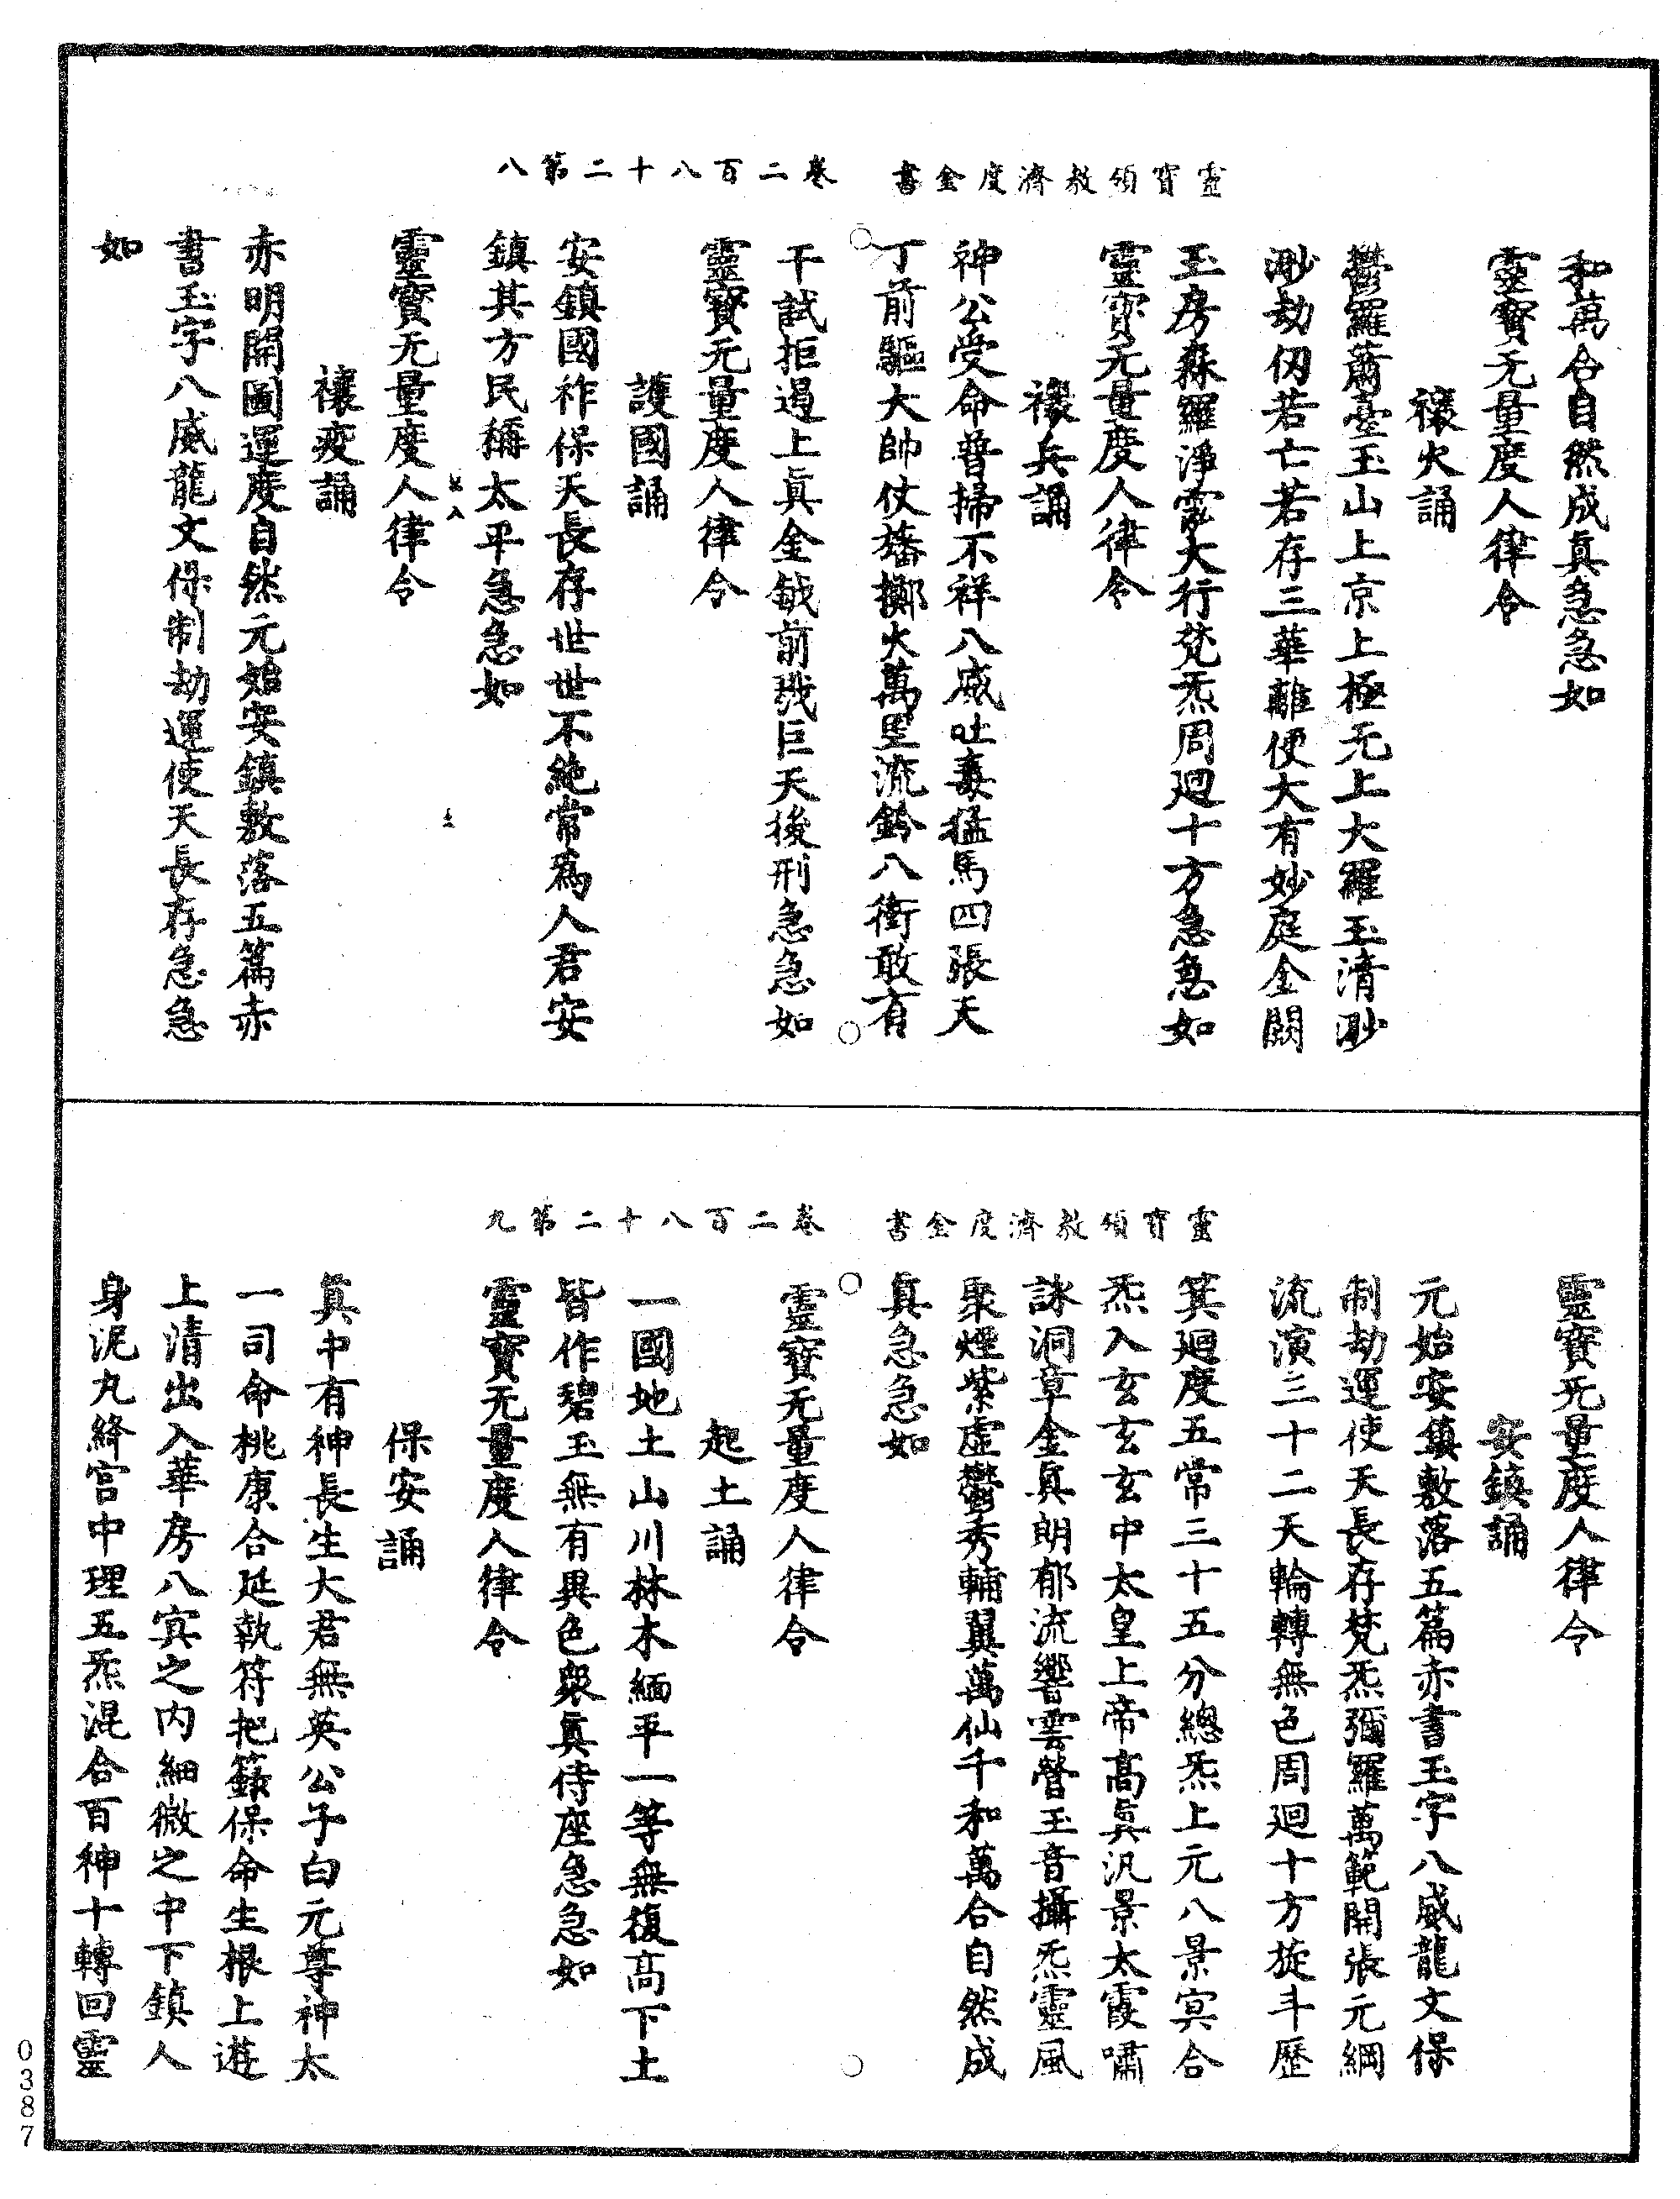 靈寶領教濟度金書　卷二百八十二第八
和萬合自然成真急急如
靈寶无量度人律令
禳火誦
鬱羅蕭臺玉山上京上極无上大羅玉清渺
渺劫仞若亡若存三華離便大有妙庭金闕
玉房森羅淨霐大行梵炁周迴十方急急如
靈寶无量度人律令
禳兵誦
神公受命普掃不祥八威吐毒猛馬四張天
丁前驅大帥仗旛擲火萬里流鈴八衝敢有
干試拒遏上真金鉞前戮巨天後刑急急如
靈寶无量度人律令
護國誦
安鎮國祚保天長存世世不絶常爲人君安
鎮其方民稱太平急急如
靈寶无量度人律令
禳疫誦
赤明開圖運度自然元始安鎮敷落五篇赤
書玉字八威龍文保制劫運使天長存急急
如
靈寶領教濟度金書　卷二百八十二第九
靈寶无量度人律令
安鎮誦
元始安鎮敷落五篇赤書玉字八威龍文保
制劫運使天長存梵炁彌羅萬範開張元綱
流演三十二天輪轉無色周迴十方旋斗歷
箕迴度五常三十五分總炁上元八景冥合
炁入玄玄玄中太皇上帝高真汎景太霞嘯
詠洞章金真朗郁流響雲營玉音攝炁靈風
聚煙紫虛鬱秀輔翼萬仙千和萬合自然成
真急急如
靈寶无量度人律令
起土誦
一國地土山川林木緬平一等無復高下土
皆作碧玉無有異色衆真侍座急急如
靈寶无量度人律令
保安誦
真中有神長生大君無英公子白元尊神太
一司命桃康合延執符把籙保命生根上遊
上清出入華房八冥之内細微之中下鎮人
身泥丸絳宮中理五炁混合百神十轉回靈
0387